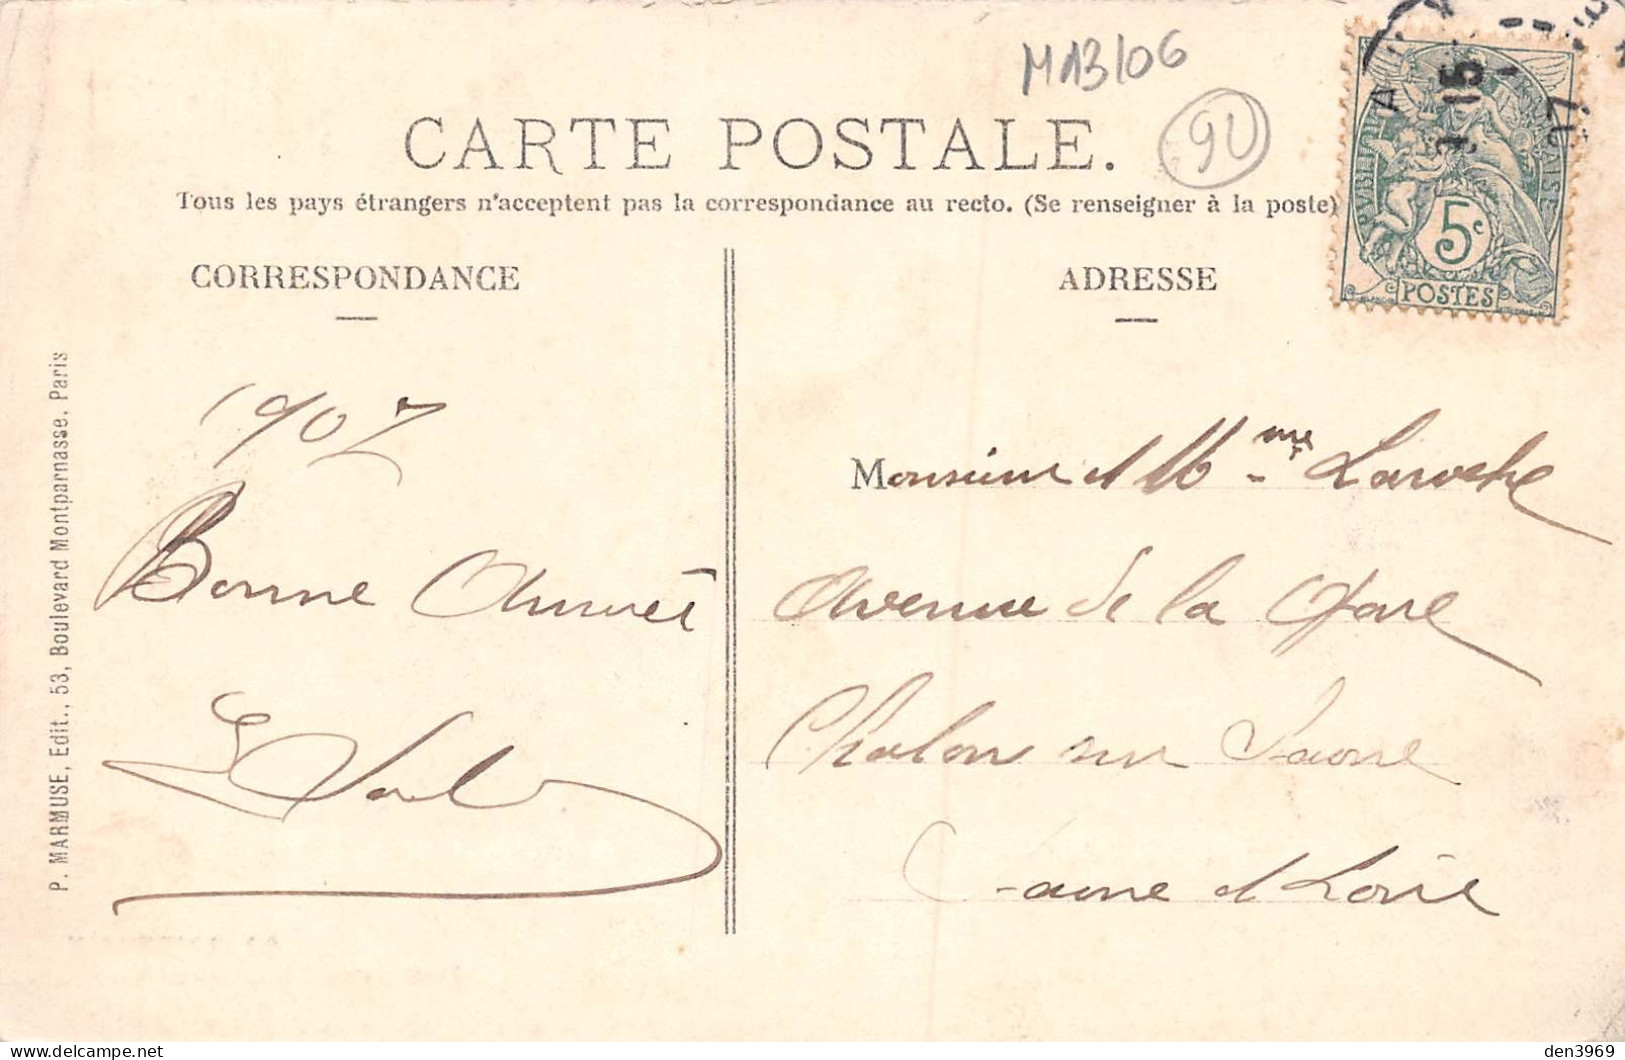 M13/06
90
CARTE POSTALE.
Tous les pays étrangers n'acceptent pas la correspondance au recto. (Se renseigner à la poste)
5c
POSTES
CORRESPONDANCE
ADRESSE
P. MARMUSE, Edit., 53, Boulevard Montparnasse, Paris
1907
Bonne Année
Monsieur et Mme Laroche
Avenue de la Gare
Chalon sur Saone
Saone et Loire
den3969